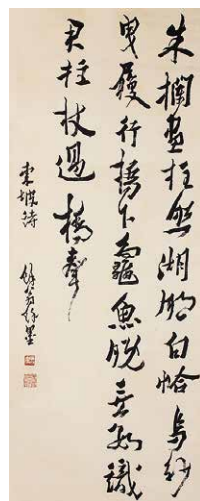 朱欄畫柱照湖明白烏紗
曳履行橋下龜魚晚無數識
君拄杖過橋聲
東坡詩